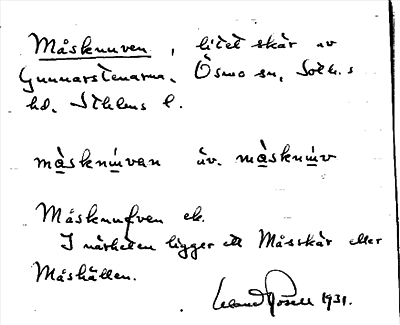 Måsknuven, litet skär av
Gunnarstenarna. Ösmo sn, Sotk.s
hd. Sthlms l.
måsknúvan äv. måsknúv
Måsknufven ek.
I närheten ligger ett Måsskär eller
Måshällen.
1931.